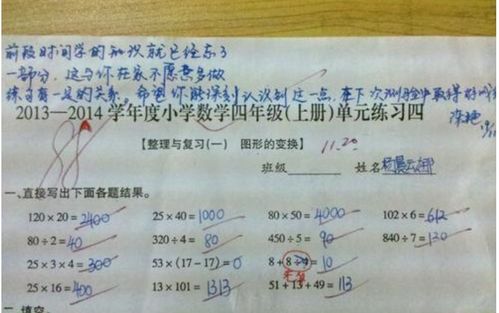 前段时间学的知识就已经忘了
一部分，这与你在家不愿意多做
练习有一定的关系，希望你能深刻认识到这一点，在下次测验中取得好
2013—2014学年度小学数学四年级(上册)单元练习四
88
【整理与复习(一) 图形的变换】 11.20
班级 姓名
一、直接写出下面各题结果。
120×20=2400 25×40=1000 80×50=4000 102×6=612
80÷2=40 320÷4=80 450÷5=90 840÷7=120
25×3×4=300 53×(17-17)=0 8+8÷4=10
25×16=400 13×101=1313 51+13+49=113
二、填空。